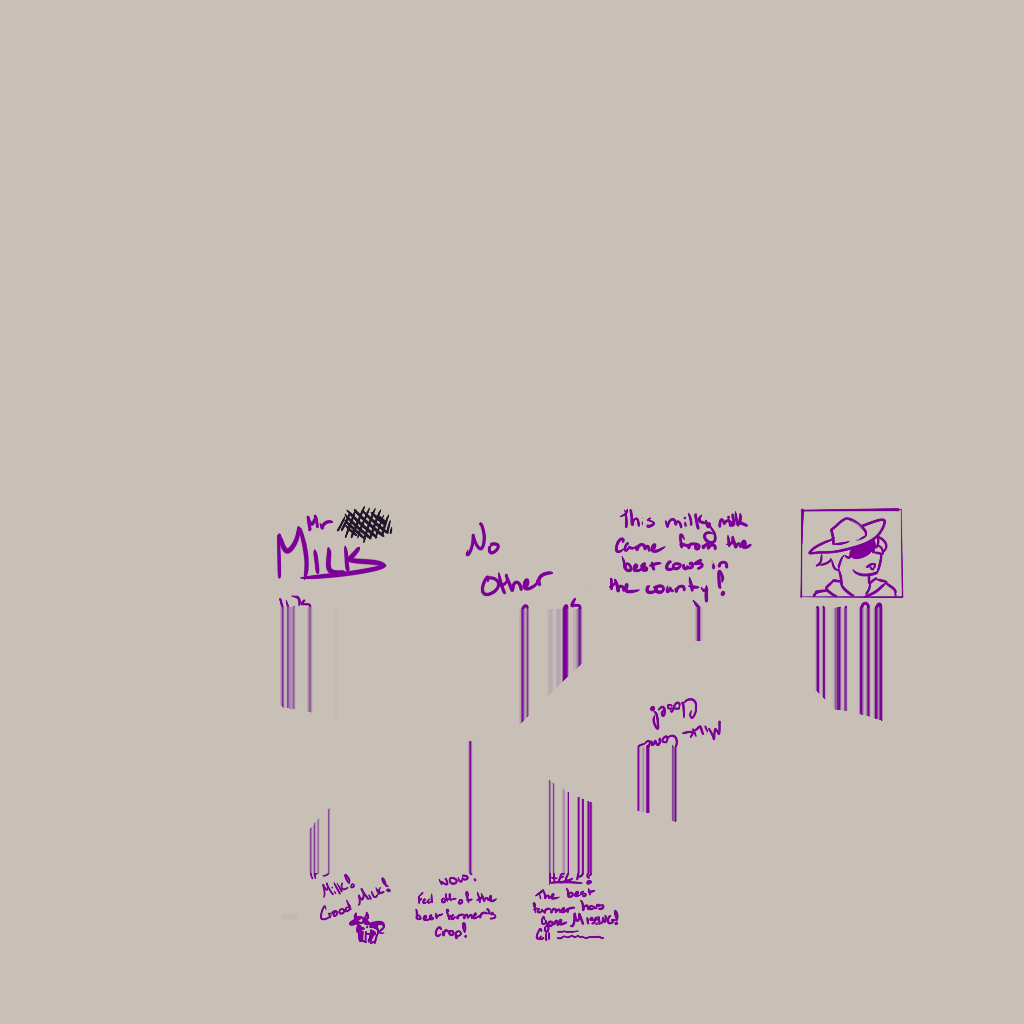 Mr
MILK
No
Other
This milky milk
Came from the
best cows in
the county!
Milk.com
Milk!
Good Milk!
WOW!
Fed off of the
best farmer's
Crop!
HELP!
The best
farmer has
gone MISSING!
Call